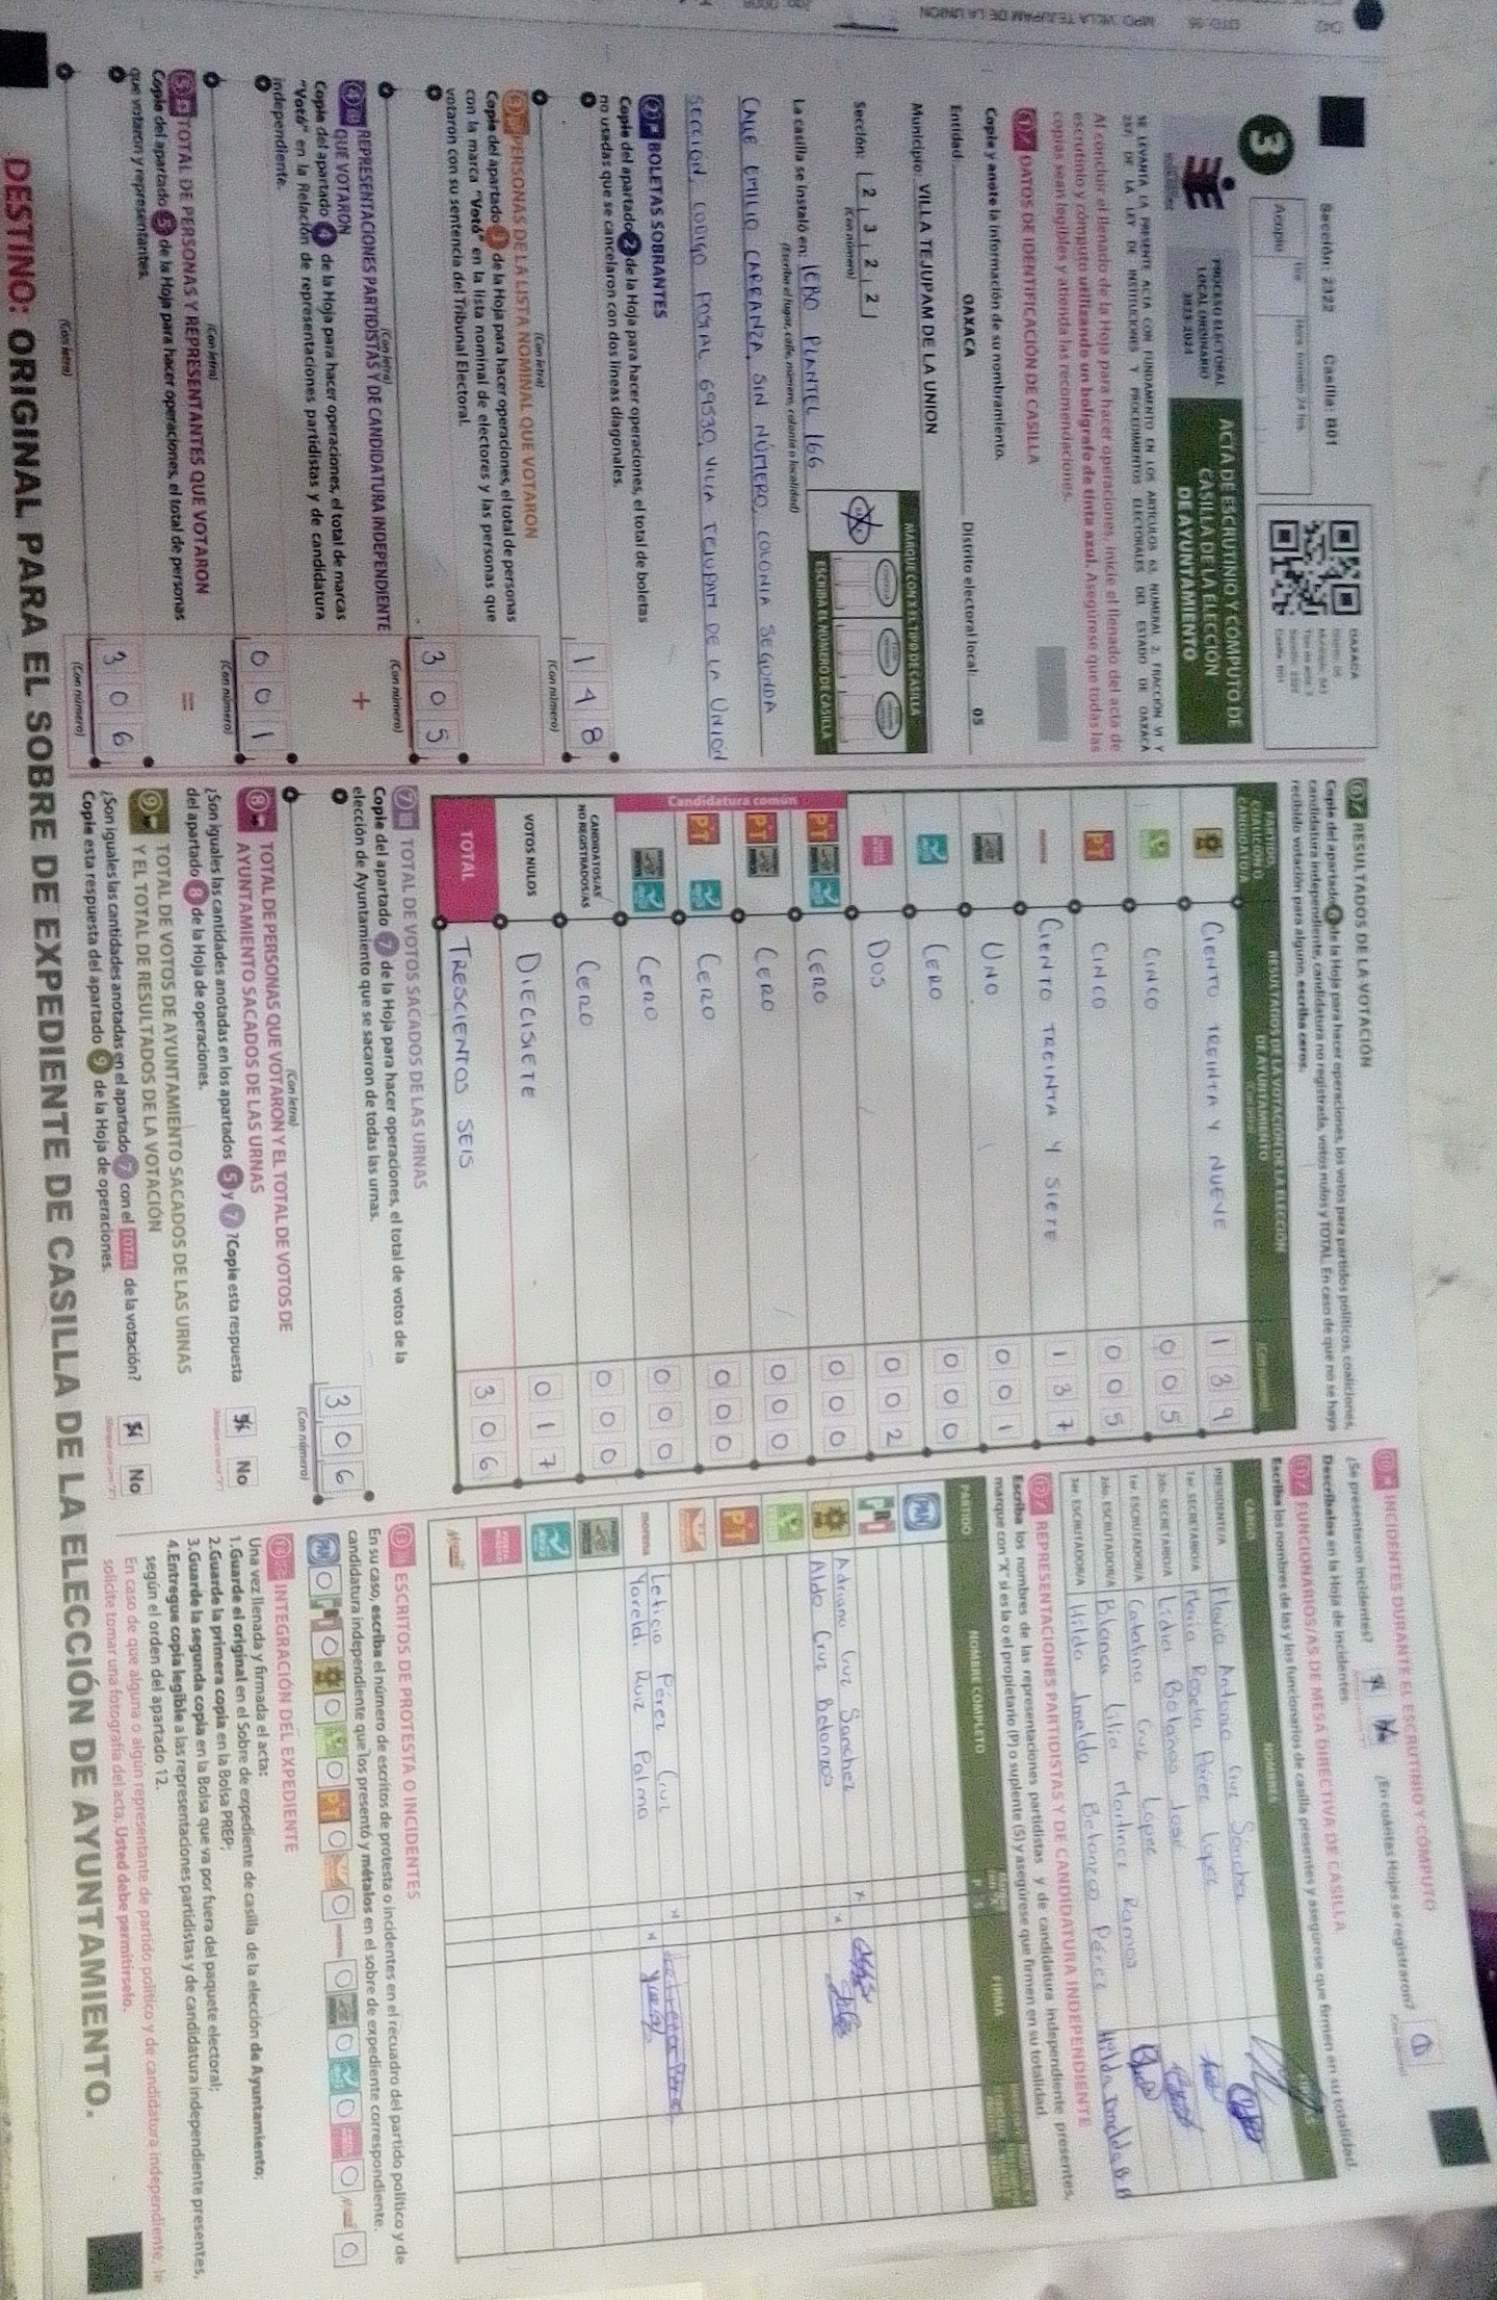 Sección: 2322 Casilla: B01
Acopio
3
PROCESO ELECTORAL
LOCAL ORDINARIO
2023-2024
ACTA DE ESCRUTINIO Y CÓMPUTO DE
CASILLA DE LA ELECCIÓN
DE AYUNTAMIENTO
OAXACA
SE LEVANTA LA PRESENTE ACTA CON FUNDAMENTO EN LOS ARTÍCULOS 63, NUMERAL 2, FRACCIÓN VI Y
237; DE LA LEY DE INSTITUCIONES Y PROCEDIMIENTOS ELECTORALES DEL ESTADO DE OAXACA
Al concluir el llenado de la Hoja para hacer operaciones, inicie el llenado del acta de
escrutinio y cómputo utilizando un bolígrafo de tinta azul. Asegúrese que todas las
copias sean legibles y atienda las recomendaciones.
1 DATOS DE IDENTIFICACIÓN DE CASILLA
Copie y anote la información de su nombramiento.
Entidad: OAXACA Distrito electoral local: 05
Municipio: VILLA TEJUPAM DE LA UNION
Sección: 2 3 2 2
(Con número)
MARQUE CON X EL TIPO DE CASILLA
ESCRIBA EL NÚMERO DE CASILLA
La casilla se instaló en: IEBO PLANTEL 166
(Escriba el lugar, calle, número, colonia o localidad)
CALLE EMILIO CARRANZA, SIN NÚMERO, COLONIA SEGUNDA
SECCIÓN, CODIGO POSTAL 69530, VILLA TEJUPAM DE LA UNION
2 BOLETAS SOBRANTES
Copie del apartado 2 de la Hoja para hacer operaciones, el total de boletas
no usadas que se cancelaron con dos líneas diagonales.
148
(Con letra) (Con número)
3 PERSONAS DE LA LISTA NOMINAL QUE VOTARON
Copie del apartado 3 de la Hoja para hacer operaciones, el total de personas
con la marca "Votó" en la lista nominal de electores y las personas que
votaron con su sentencia del Tribunal Electoral.
305
(Con letra) (Con número)
4 REPRESENTACIONES PARTIDISTAS Y DE CANDIDATURA INDEPENDIENTE
QUE VOTARON
Copie del apartado 4 de la Hoja para hacer operaciones, el total de marcas
"Votó" en la Relación de representaciones partidistas y de candidatura
independiente.
+
001
(Con letra) (Con número)
5 TOTAL DE PERSONAS Y REPRESENTANTES QUE VOTARON
Copie del apartado 5 de la Hoja para hacer operaciones, el total de personas
que votaron y representantes.
=
306
(Con letra) (Con número)
6 RESULTADOS DE LA VOTACIÓN
Copie del apartado 6 de la Hoja para hacer operaciones, los votos para partidos políticos, coaliciones,
candidatura independiente, candidatura no registrada, votos nulos y TOTAL. En caso de que no se haya
recibido votación para alguno, escriba ceros.
PARTIDO, COALICIÓN O CANDIDATURA
RESULTADOS DE LA VOTACIÓN DE LA ELECCIÓN
DE AYUNTAMIENTO
CIENTO TREINTA Y NUEVE 139
CINCO 005
PT CINCO 005
morena CIENTO TREINTA Y SIETE 137
UNO 001
CERO 000
DOS 002
Candidatura común
PT CERO 000
PT CERO 000
PT CERO 000
CERO 000
CANDIDATOS/AS NO REGISTRADOS/AS CERO 000
VOTOS NULOS DIECISIETE 017
TOTAL TRESCIENTOS SEIS 306
7 TOTAL DE VOTOS SACADOS DE LAS URNAS
Copie del apartado 7 de la Hoja para hacer operaciones, el total de votos de la
elección de Ayuntamiento que se sacaron de todas las urnas.
306
(Con letra) (Con número)
8 TOTAL DE PERSONAS QUE VOTARON Y EL TOTAL DE VOTOS DE
AYUNTAMIENTO SACADOS DE LAS URNAS
¿Son iguales las cantidades anotadas en los apartados 5 y 7? Copie esta respuesta
del apartado 8 de la Hoja de operaciones.
Sí No
9 TOTAL DE VOTOS DE AYUNTAMIENTO SACADOS DE LAS URNAS
Y EL TOTAL DE RESULTADOS DE LA VOTACIÓN
¿Son iguales las cantidades anotadas en el apartado 7 con el TOTAL de la votación?
Copie esta respuesta del apartado 9 de la Hoja de operaciones.
Sí No
10 INCIDENTES DURANTE EL ESCRUTINIO Y CÓMPUTO
¿Se presentaron incidentes? Sí No ¿En cuántas Hojas se registraron?
Descríbalos en la Hoja de Incidentes.
11 FUNCIONARIOS/AS DE MESA DIRECTIVA DE CASILLA
Escriba los nombres de las y los funcionarios de casilla presentes y asegúrese que firmen en su totalidad.
CARGO NOMBRES
PRESIDENTE/A Flavio Antonio Cruz Sánchez
1er. SECRETARIO/A María Roselia Pérez López
2do. SECRETARIO/A Lidia Bolaños José
1er. ESCRUTADOR/A Catalina Cruz López
2do. ESCRUTADOR/A Blanca Lilia Martínez Ramos
3er. ESCRUTADOR/A Hilda Imelda Betanzos Pérez Hilda Imelda B.P
12 REPRESENTACIONES PARTIDISTAS Y DE CANDIDATURA INDEPENDIENTE
Escriba los nombres de las representaciones partidistas y de candidatura independiente presentes,
marque con "X" si es la o el propietario (P) o suplente (S) y asegúrese que firmen en su totalidad.
PARTIDO NOMBRE COMPLETO P S FIRMA
PAN
PRI
Adriana Cruz Sanchez x
Aldo Cruz Betanzos x
PT
morena Leticia Pérez Cruz x
Yareldi Ruiz Palma x
13 ESCRITOS DE PROTESTA O INCIDENTES
En su caso, escriba el número de escritos de protesta o incidentes en el recuadro del partido político y de
candidatura independiente que los presentó y métalos en el sobre de expediente correspondiente.
14 INTEGRACIÓN DEL EXPEDIENTE
Una vez llenada y firmada el acta:
1.Guarde el original en el Sobre de expediente de casilla de la elección de Ayuntamiento;
2.Guarde la primera copia en la Bolsa PREP;
3.Guarde la segunda copia en la Bolsa que va por fuera del paquete electoral;
4.Entregue copia legible a las representaciones partidistas y de candidatura independiente presentes,
según el orden del apartado 12.
En caso de que alguna o algún representante de partido político y de candidatura independiente, le
solicite tomar una fotografía del acta. Usted debe permitírselo.
DESTINO: ORIGINAL PARA EL SOBRE DE EXPEDIENTE DE CASILLA DE LA ELECCIÓN DE AYUNTAMIENTO.